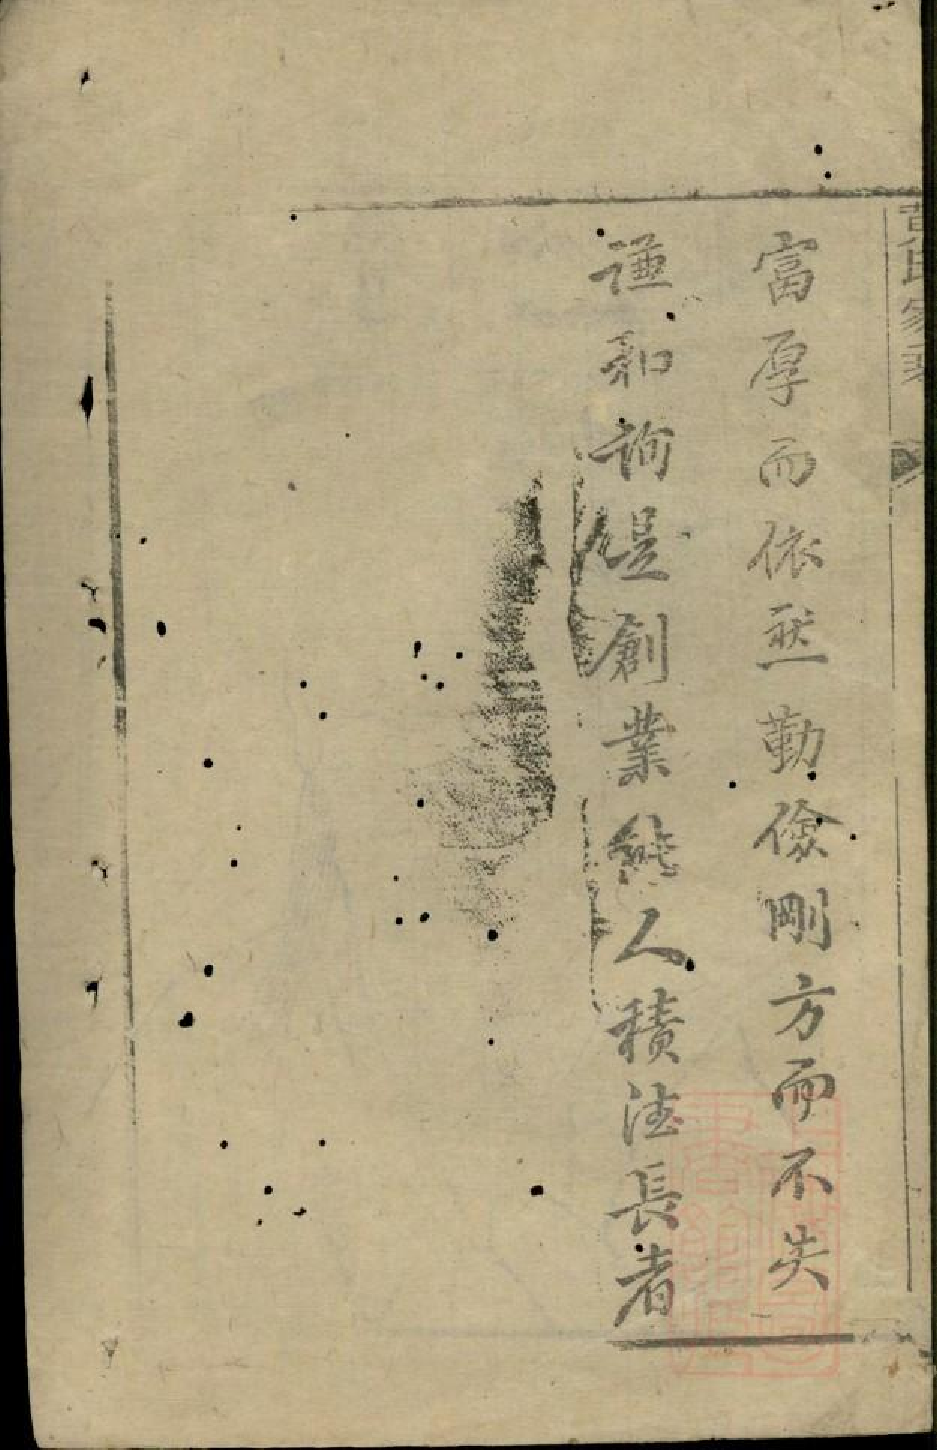 富厚而依然勤儉剛方而不失
謙和詢是創業能人積德長者
氏家乘